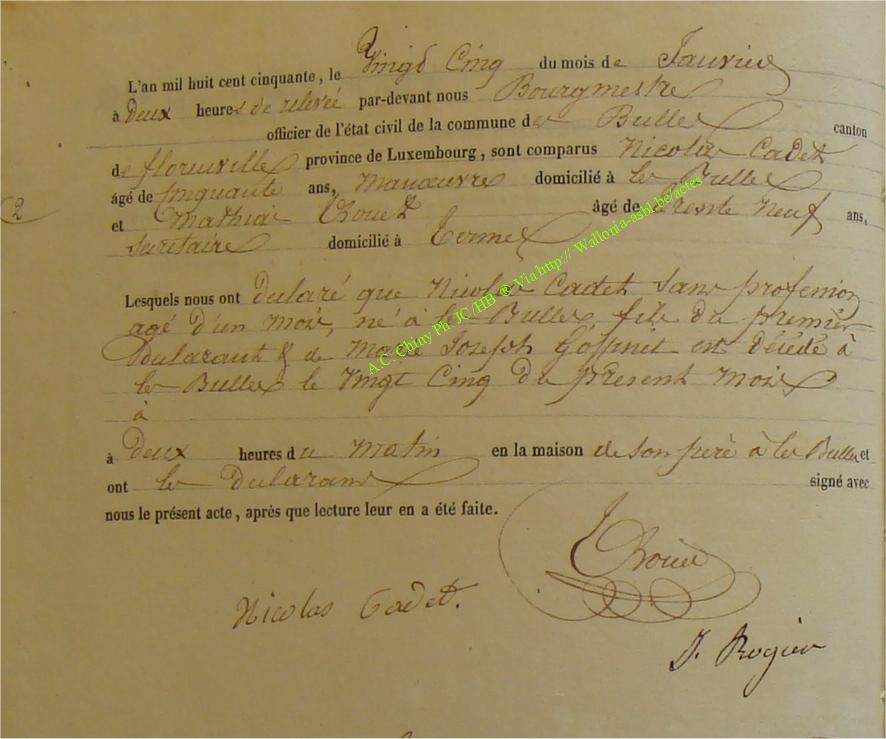 L'an mil huit cent cinquante, le Vingt Cinq du mois de Janvier
à Deux heures de relevée par-devant nous Bourgmestre
officier de l'état civil de la commune des Bulles canton
de florenville province de Luxembourg, sont comparus Nicolas Cadet
âgé de Cinquante ans, Manœuvre domicilié à les Bulles
2
et Mathias âgé de trente Neuf ans,
domicilié à Termes
Lesquels nous ont declaré que Nicolas Cadet sans profession
agé d'un Mois, né à les Bulles fils du premier
Declarant & de Marie Joseph est Décédé à
les Bulles le Vingt Cinq du present Mois
à
à Deux heures du Matin en la maison de son pere à les Bulles et
ont les Declarans signé avec
nous le présent acte, après que lecture leur en a été faite.
Nicolas Cadet.
J. Rogier
A.C. Chiny Ph. JC/HB @ Via http:// Wallonia-asbl.be/actes